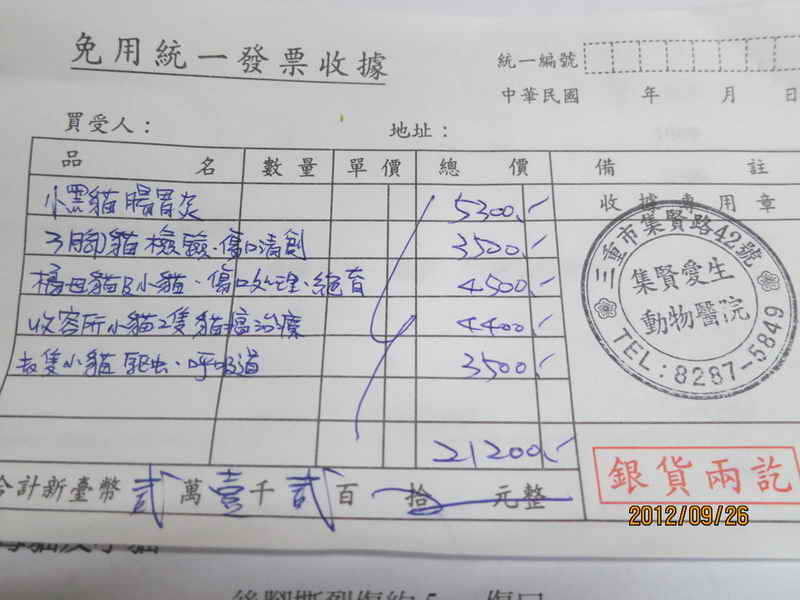 免用統一發票收據
統一編號
中華民國 年 月 日
買受人：
地址：
品名 數量 單價 總價 備註
小黑貓腸胃炎 5300.-
收據專用章
3腳貓檢驗.傷口清創 3500.-
橘母貓及小貓.傷口處理.絕育 4500.-
收容所小貓2隻貓瘟治療 4400.-
隻小貓 驅虫.呼吸道 3500.-
21200.-
合計新臺幣 貳 萬 壹 千 貳 百 拾 元整
三重市集賢路42號
集賢愛生
動物醫院
TEL:8287-5849
銀貨兩訖
2012/09/26